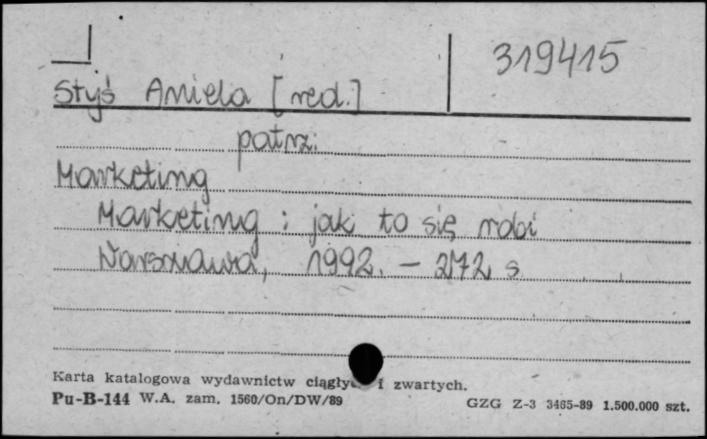 319415
Styś Aniela [red.]
patrz.
Marketing
Marketing : jak to się robi
Warszawa, 1992. – 272 s
Karta katalogowa wydawnictw i zwartych.
Pu-B-144 W.A. zam. 1560/On/DW/89
GZG Z-3 3465-89 1.500.000 szt.